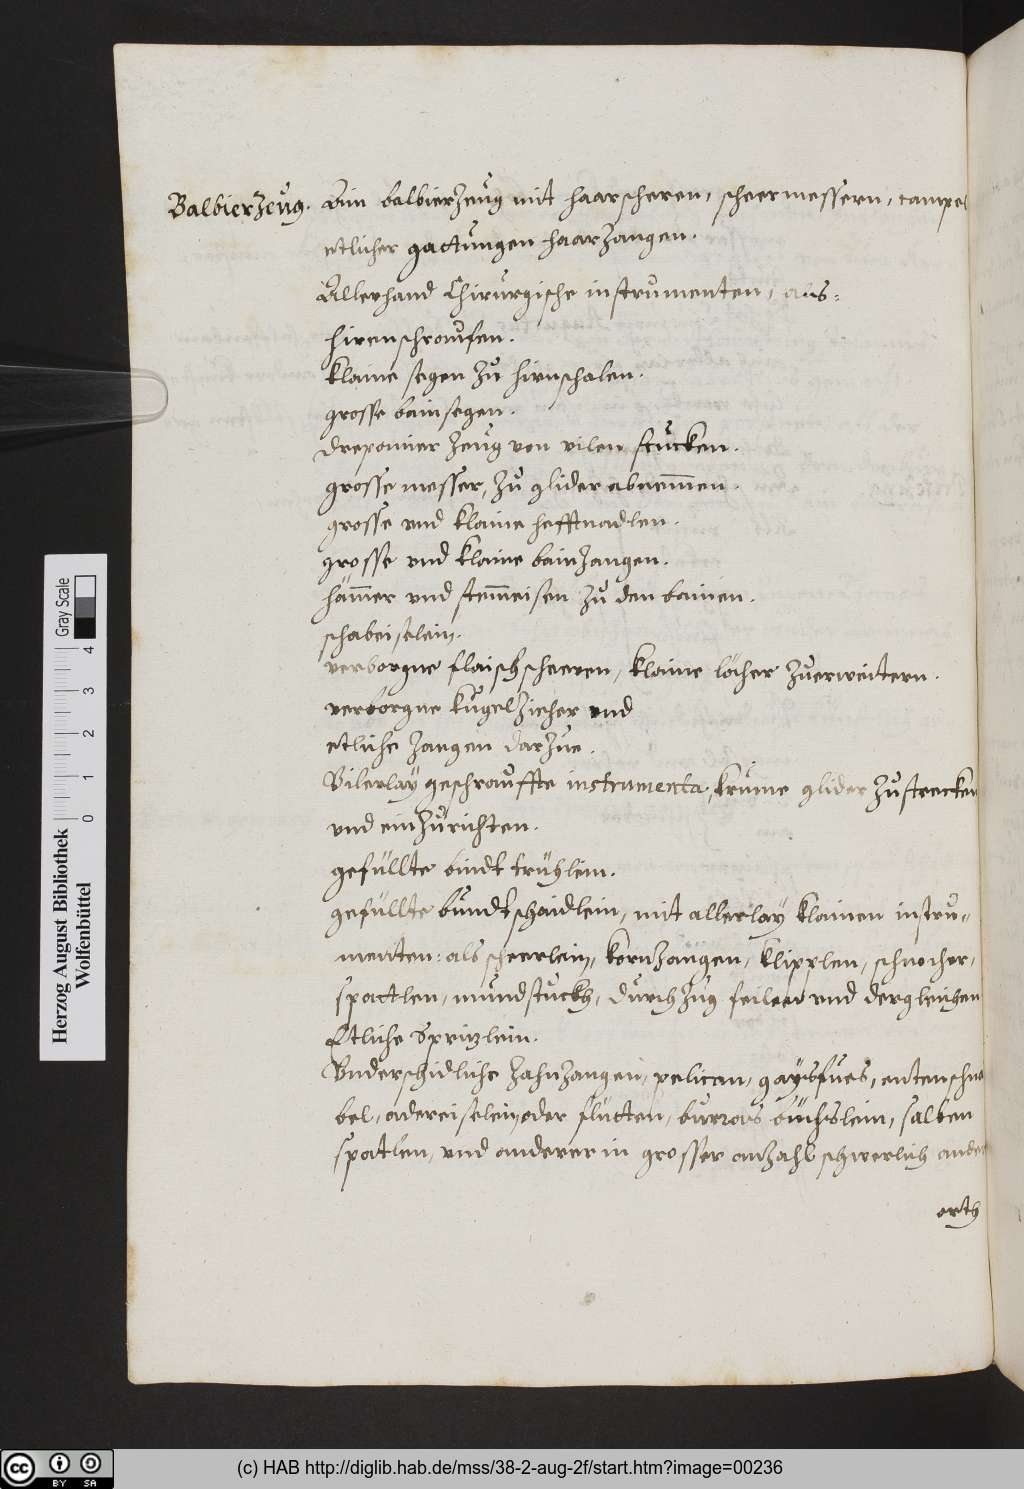 Balbierzeug. Ein balbierzeug mit haarscheren, scheermessern, campel
etlicher gattungen haarzangen.
Allerhand Chirurgische instrumenten, als:
hirenschraufen.
klaine segen zu hirnschalen.
grosse bainsegen.
Drepanier zeug von vilen stucken.
grosse messer, zu glider abnemen.
grosse vnd klaine hefftnadlen.
grosse vnd klaine bainzangen.
hämer vnd stemeisen zu den bainen.
schabeiselein.
verborgne flaischscheeren, klaine löcher zuerweitern.
verborgne kugelzieher vnd
etliche zangen darzue.
Vilerlay geschrauffte instrumenta, krume glider zustrecken
vnd einzurichten.
gefüllte bindt trühlein.
gefüllte bundt schaidlein, mit allerlay klainen instru=
menten: als scheerlein, kornzangen, schnocher,
spatlen, mundstuckh, durchzüg feilen vnd dergleichen
Etliche Spritzlein.
Vnderschidliche zahnzangen, pelican, gaysfues, entenschna
bel, adereiselein, oder flütten, büchslein, salben
spatlen, vnd anderer in grosser anzahl schwerlich ander
orth
Herzog August Bibliothek
Wolfenbüttel
0 1 2 3 4
Gray Scale
cc BY SA
(c) HAB http://diglib.hab.de/mss/38-2-aug-2f/start.htm?image=00236